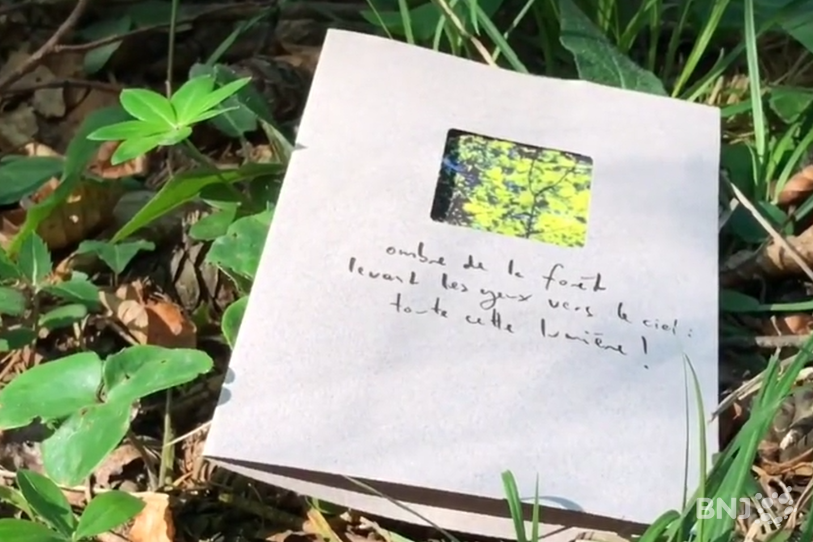 ombre de la forêt
levant les yeux vers le ciel :
toute cette lumière !
BNJ